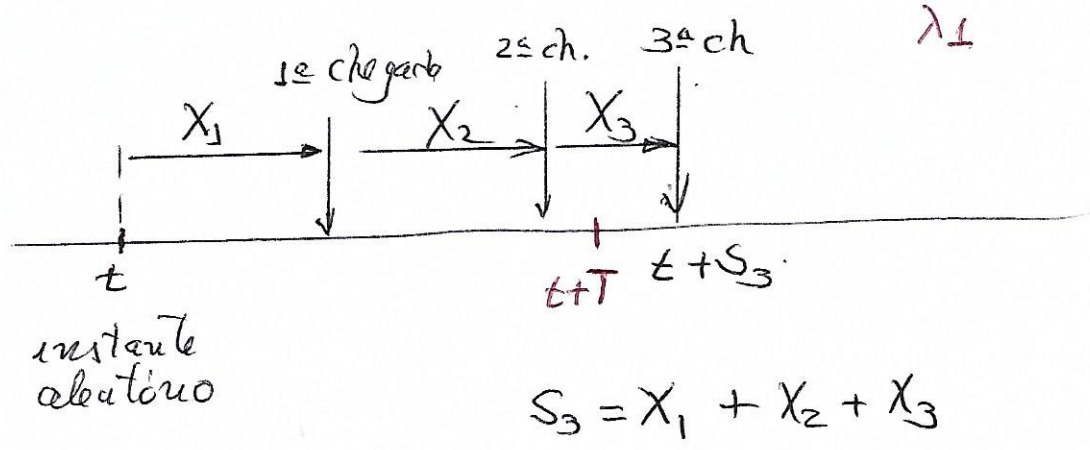 λ1
1ª chegada
2ª ch.
3ª ch
X₁
X₂
X₃
t
t+T
t+S₃
instante
aleatório
S₃ = X₁ + X₂ + X₃